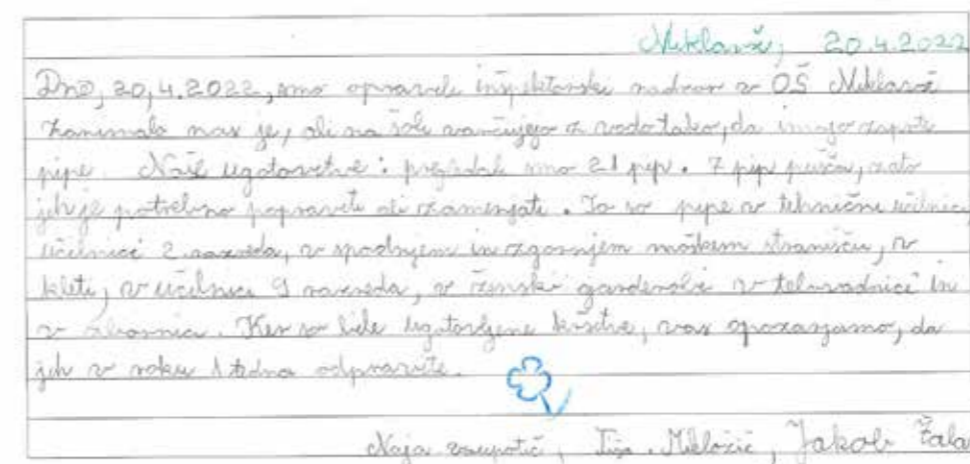 Miklavž, 20.4.2022
Dne, 20,4.2022, smo opravili inšpektorski nadzor v OŠ Miklavž
Zanimalo nas je, ali na šoli varčujejo z vodo tako, da imajo zaprte
pipe. Naše ugotovitve: pregledali smo 21 pip. 7 pip pušča, zato
jih je potrebno popraviti ali zamenjati. To so pipe v tehnični učilnici,
učilnici 2. razreda, v spodnjem in zgornjem moškem stranišču, v
kleti, v učilnici 9 razreda, v ženski garderobi v telovadnici in
v zbornici. Ker so bile ugotovljene kršitve, vas opozarjamo, da
jih v roku 1 tedna odpravite.
Naja, Tija Mikložič, Jakob Zala